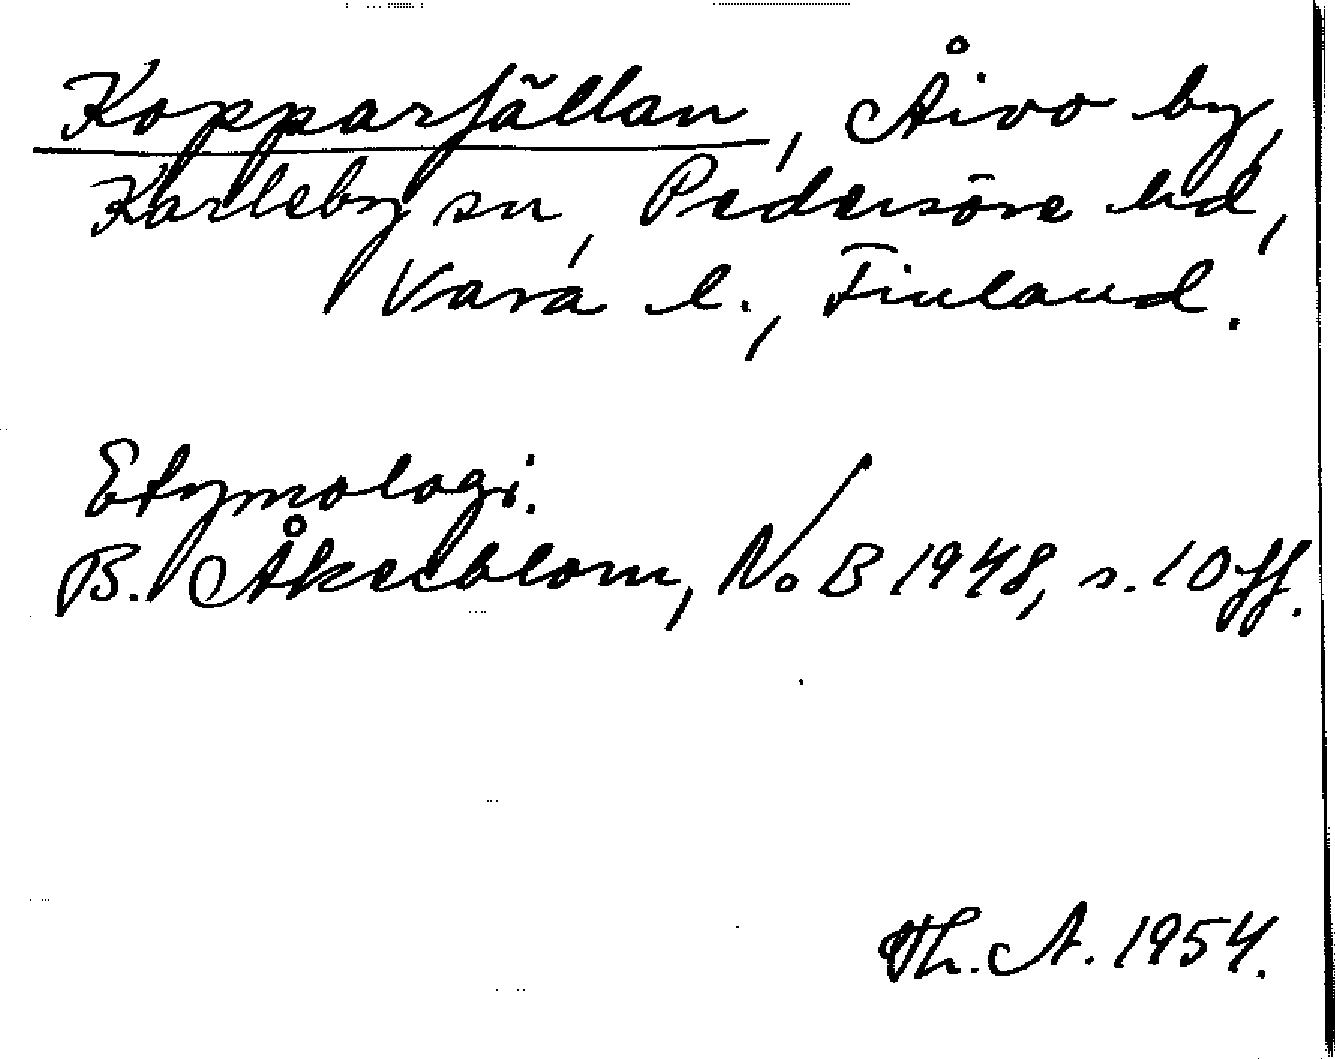 Kopparfällan, Åivo by,
Karleby sn, Pedersöre hd,
Vasa l., Finland.
Etymologi.
B. Åkerblom, NoB 1948, s. 10ff.
Th. A. 1954.